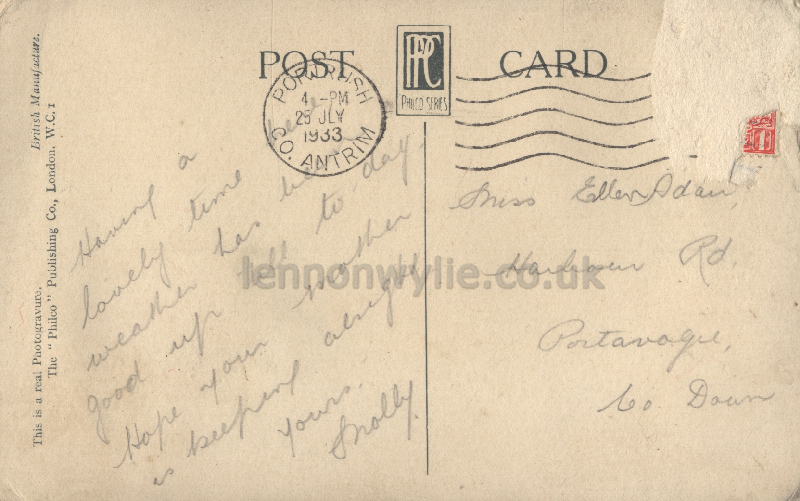 POST CARD
PPC
PHILCO SERIES
PORTRUSH
4 - PM
29 JLY
1933
CO. ANTRIM
This is a real Photogravure. British Manufacture.
The "Philco" Publishing Co., London, W.C.1
Having a
lovely time here
weather has been
good up till to day.
Hope your mother
is keeping alright
Yours.
Molly.
Miss Ellen Adair,
Harbour Rd.
Portavogie,
Co Down
lennonwylie.co.uk